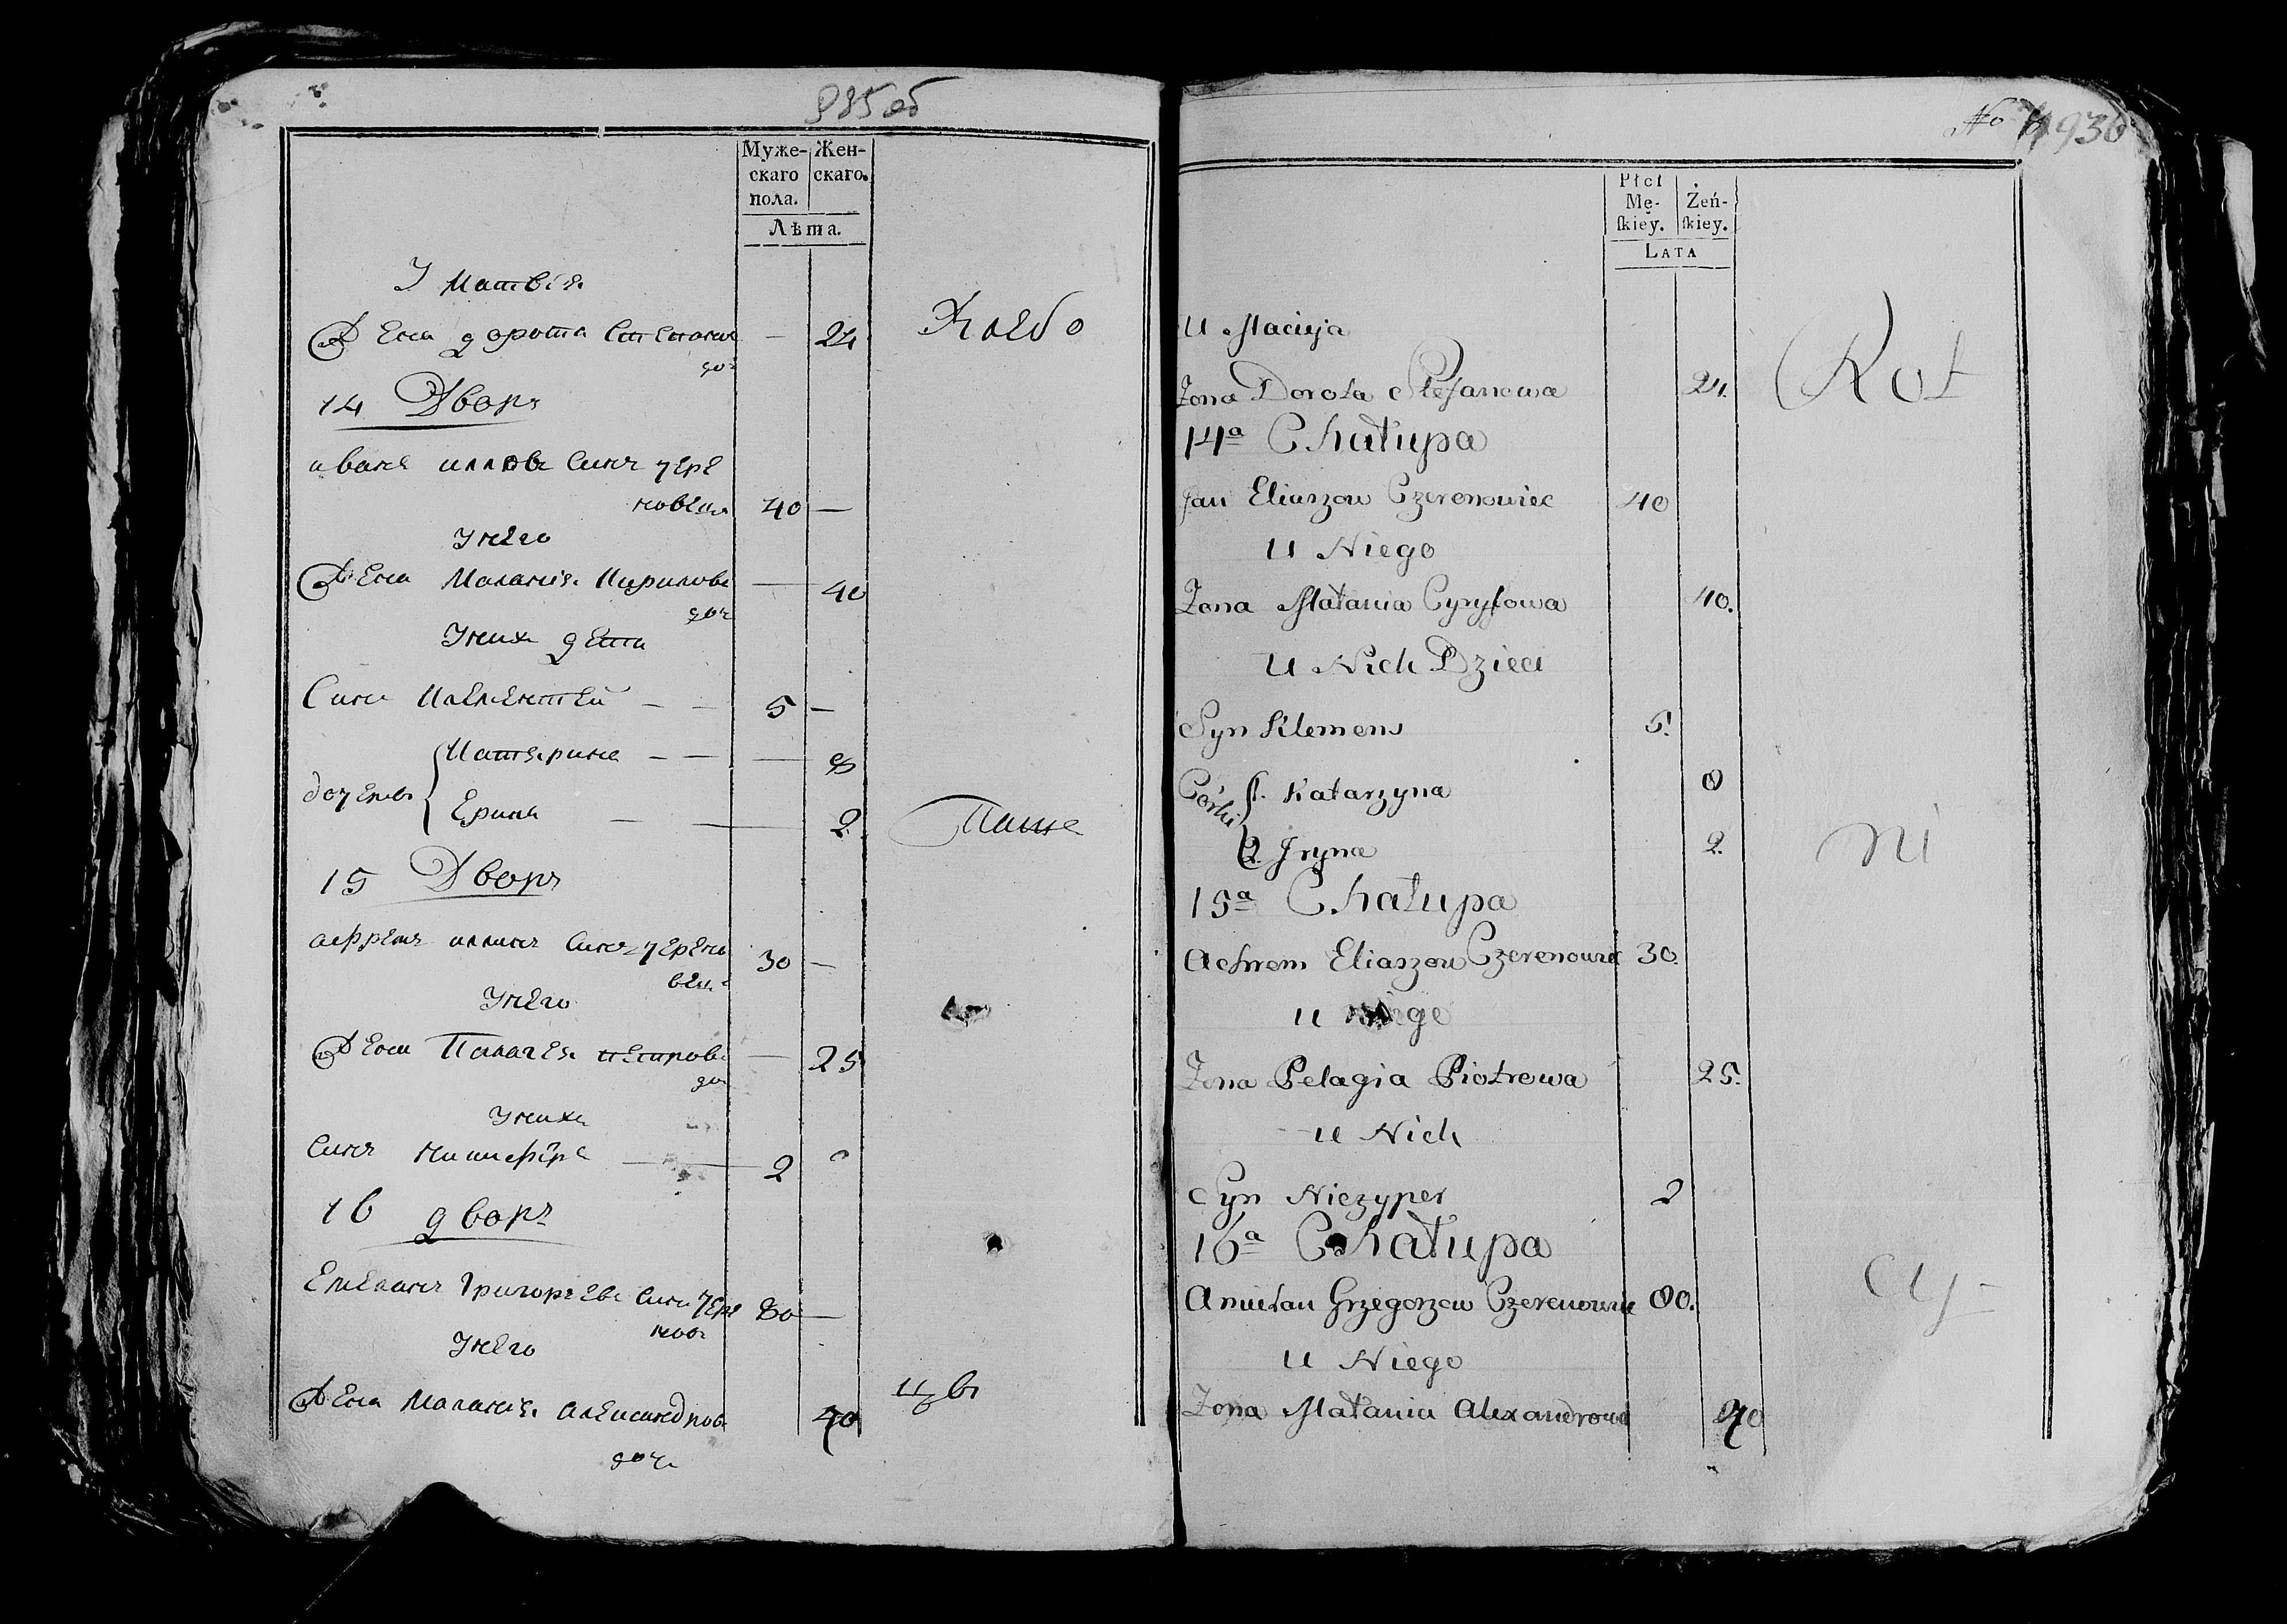 935об
Муже-
скаго
пола.
Жен-
скаго.
Лѣта.
У Матвѣя
Жена дорота Степанова 24
доч
14 Дворъ
иванъ илловъ Синъ чере
новецъ 40 —
У него
Жена Маланія Кирилова — 40
доч
У нихъ дети
Синъ Клементей — — 5 —
дочери Катярина — — — 8
Ерина — — 2
15 Дворъ
аефремъ иллинъ Синъ черено
вецъ 30 —
У него
Жена Палагея петрова — 25
доч
У нихъ
Синъ Ничипѣръ — 2
16 дворъ
Емелянъ Григоріевъ Синъ Чере
нов 80 —
У него
Жена Маланія Александрова 40
доч.
Пане
цв
No 936
Płci
Mę-
ſkiey.
Żeń-
ſkiey.
LATA
U Macieja
Żona Dorota Stefanowa 24.
14a Chałupa
Jan Eliaszow Czerenowiec 40
U Niego
Żona Małania Cyryłowa 40.
U Nich Dzieci
Syn Klemens 5.
Córki 1. Katarzyna 8
2. Iryna 2.
15a Chałupa
Achrem Eliaszow Czerenowiec 30.
u Niego
Żona Pelagia Piotrowa 25.
u Nich
Syn Niczyper 2
16a Chałupa
Amielan Grzegorzow Czerenowiec 80.
U Niego
Żona Małania Alexandrowa 40
Rot
ni
cy-